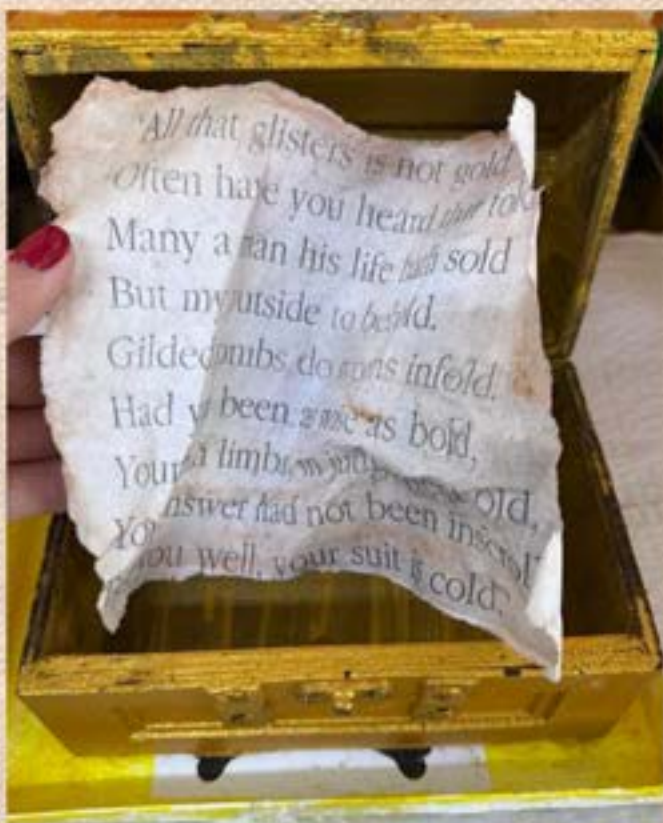 'All that glisters is not gold
Often have you heard that told
Many a man his life hath sold
But my utside to behold.
Gilded ombs do infold.
Had y been as bold,
Your limbs old,
Yo nswer had not been inscrol'
ou well, your suit is cold.'